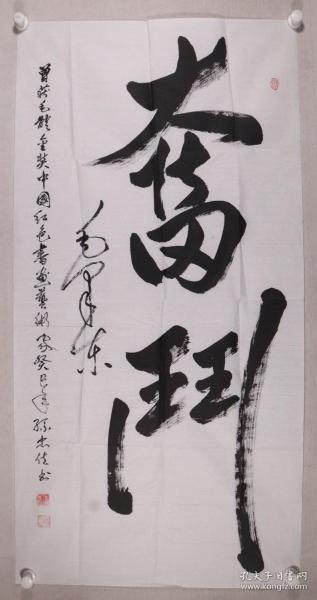 奮鬥
毛澤東
曾获毛體金奖中國红色書画藝術家癸巳年孫忠信书
孔夫子旧书网